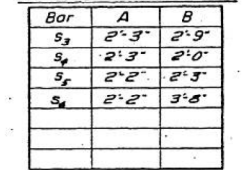 Bar A B
S3 2'-3" 2'-9"
S4 2'-3" 2'-0"
S5 2'-2" 2'-3"
S6 2'-2" 3'-8"